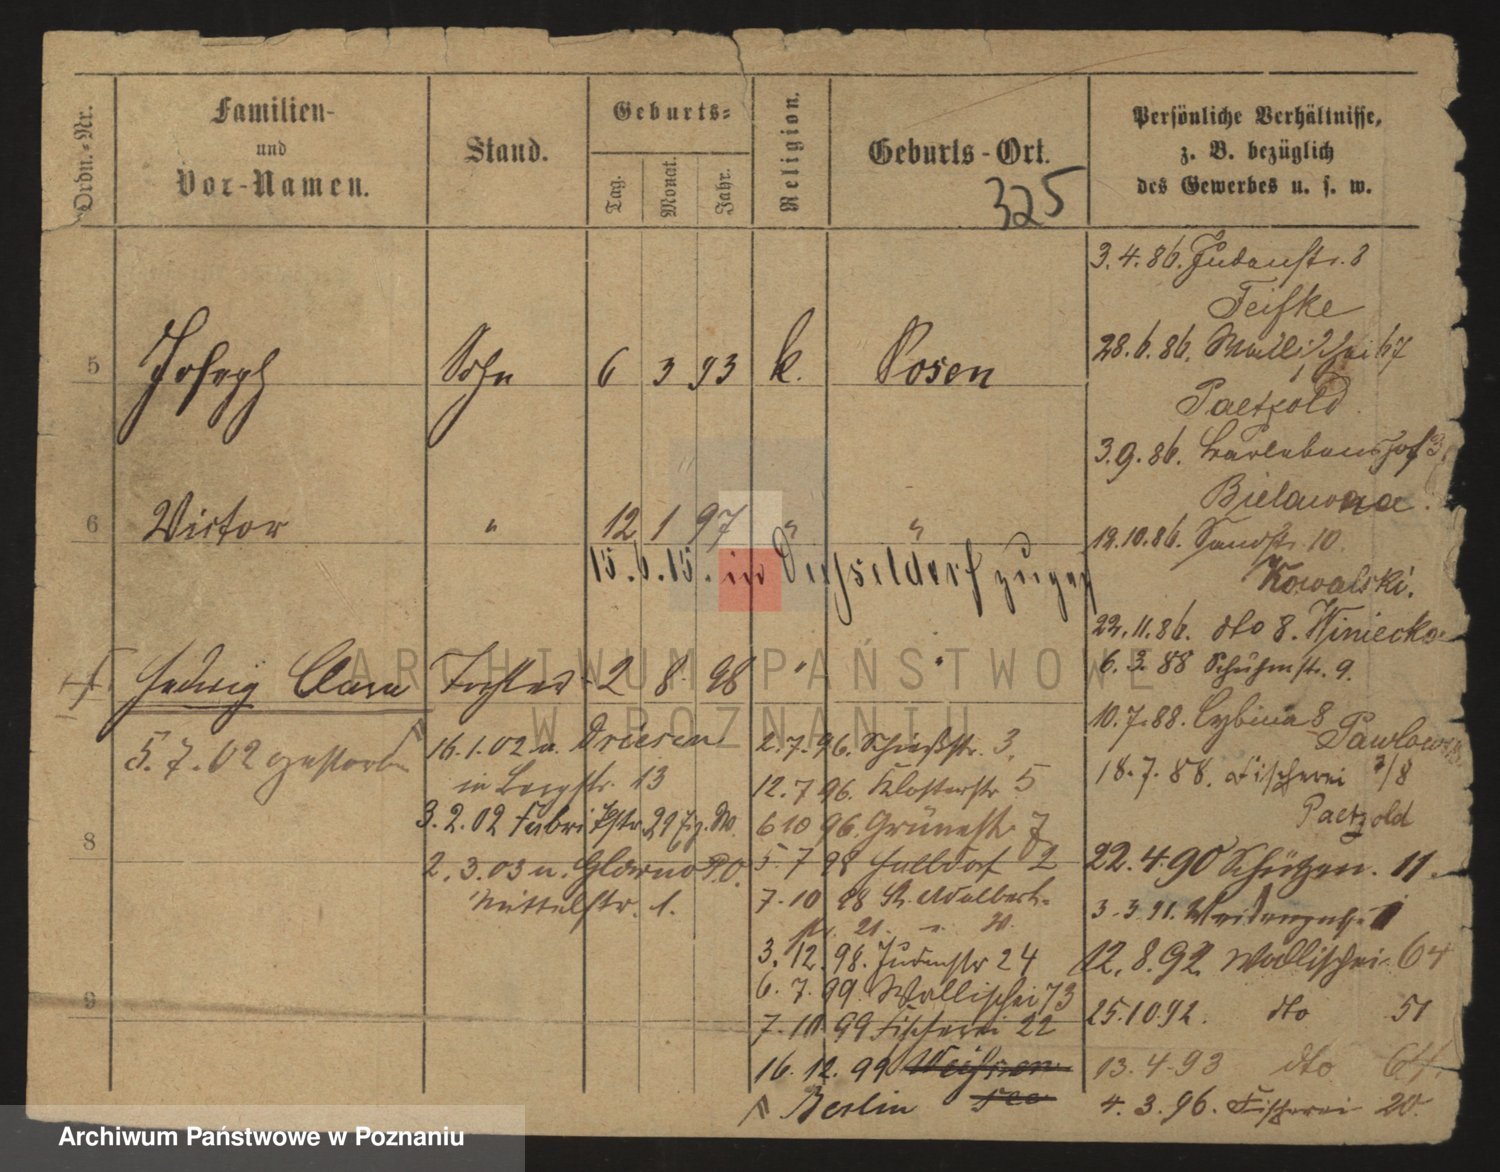 Ordn.-Nr.
Familien-
und
Vor-Namen.
Stand.
Geburts-
Tag.
Monat.
Jahr.
Religion.
Geburts-Ort.
325
Persönliche Verhältnisse,
z. B. bezüglich
des Gewerbes u. s. w.
5 Joseph Sohn 6 3 93 k. Posen
6 Victor " 12 1 97 " "
15.6.15. in Düsseldorf zugez
Hedwig Clara Tochter 2 8 98 " "
5.7.02 gestorben
8
9
16.1.02 n. Driesen
in Bergstr. 13
3.2.02 Fabrikstr. 29
2.3.03 n. Glowno P.O.
Mittelstr. 1.
2.7.96. Schießstr. 3.
12.7 96. Klosterstr 5
6 10 96. Grünestr. 7
5.7 98 Halldorf 2
7.10 98 St. Adalbert-
21. 20.
3.12.98. Judenstr 24
6.7.99. Wallischei 73
7.10 99 Fischerei 22
16.12.99 Weissen
see
Berlin
3.4.86. Judenstr. 8
Feifke
28.6.86. Wallischei 67
Paetzold
3.9.86. Barlebenshof 3.
Bielawna.
12.10.86. Sandstr. 10.
Kowalski.
22.11.86. dto 8. Winiecka
6.3 88 Schuhmstr. 9.
10.7.88. Cybina 8
Pawlowski
18.7.88. Fischerei 7/8
Paetzold
22.4.90 Schützen. 11.
3.3.91. Weidengasse 1
12.8.92 Wallischei 64
25.10.92. dto 51
13.4.93 dto 64.
4.3.96. Fischerei 20.
ARCHIWUM PAŃSTWOWE
W POZNANIU
Archiwum Państwowe w Poznaniu